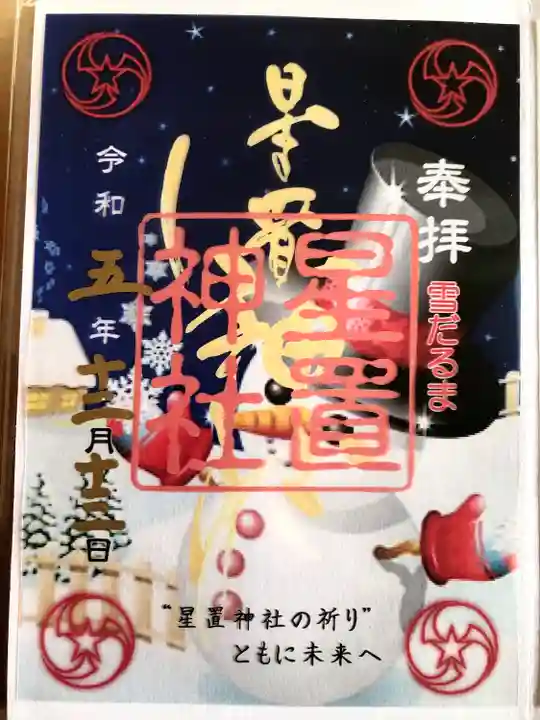 奉拝
雪だるま
星置
星置
神社
令和五年十二月十二日
“星置神社の祈り”
ともに未来へ